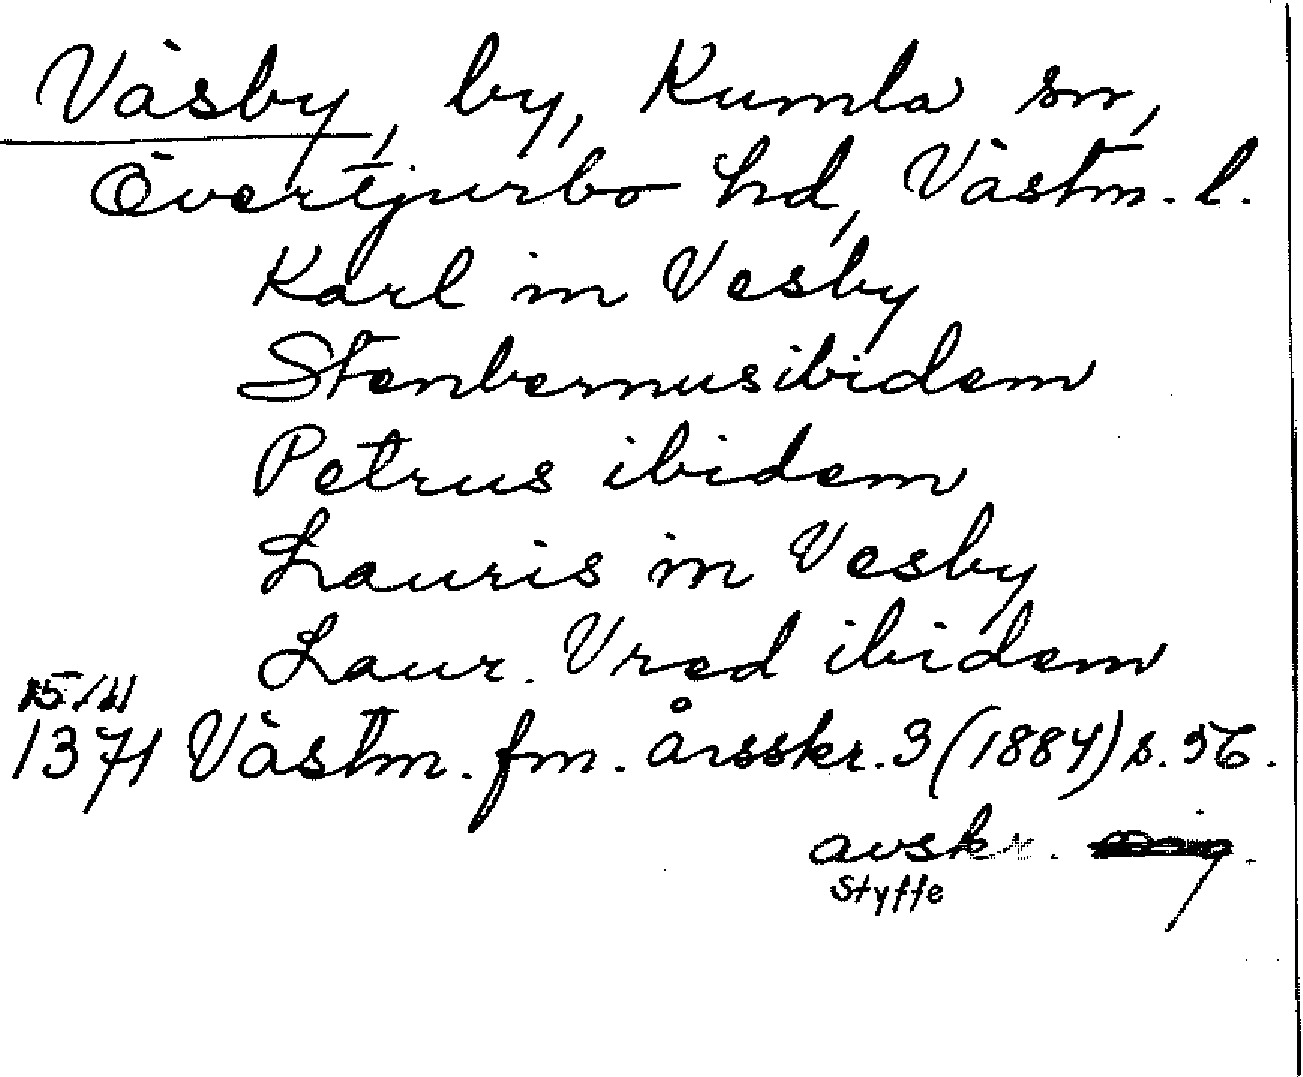 Väsby, by, Kumla sn,
Övertjurbo hd, Västm. l.
Karl in Vesby
Stenbernus ibidem
Petrus ibidem
Lauris in Vesby
Laur. Vred ibidem
1371 Västm. fm. årsskr. 3 (1884) s. 56.
avskr.
Styffe